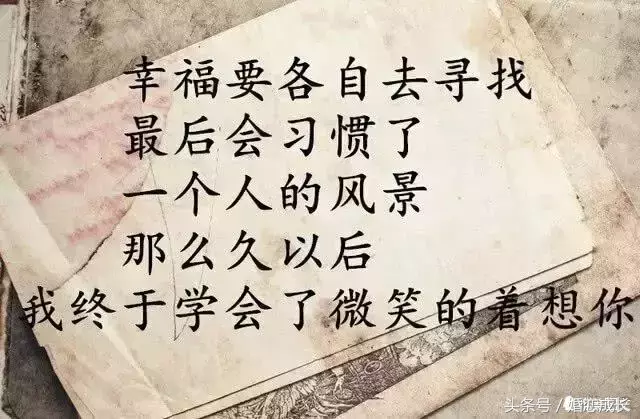 幸福要各自去寻找
最后会习惯了
一个人的风景
那么久以后
我终于学会了微笑的着想你
头条号